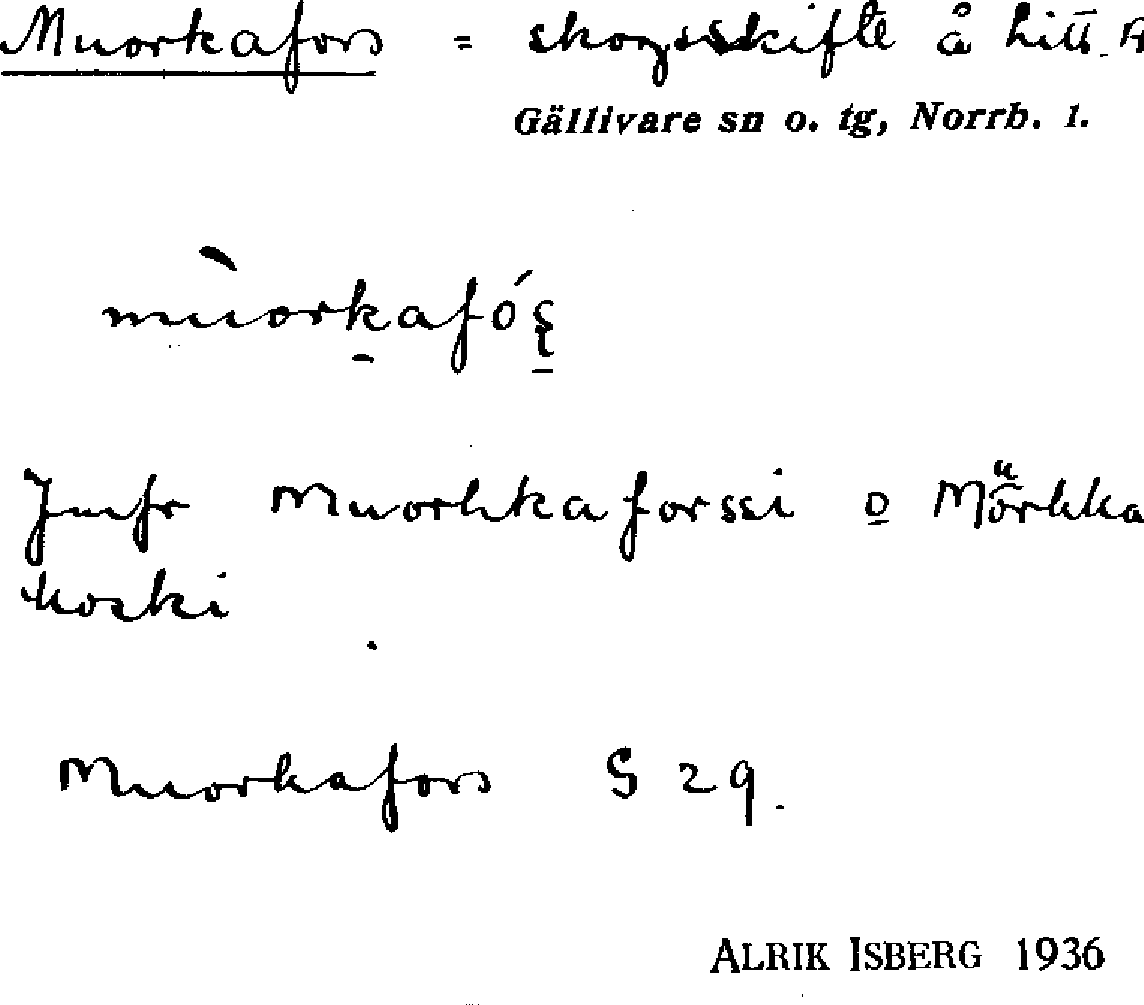 Muorkafors = skogsskifte å litt.
Gällivare sn o. tg, Norrb. 1.
Jmfr Muorkkaforssi o Mörkka
koski
Muorkafors S 29.
ALRIK ISBERG 1936